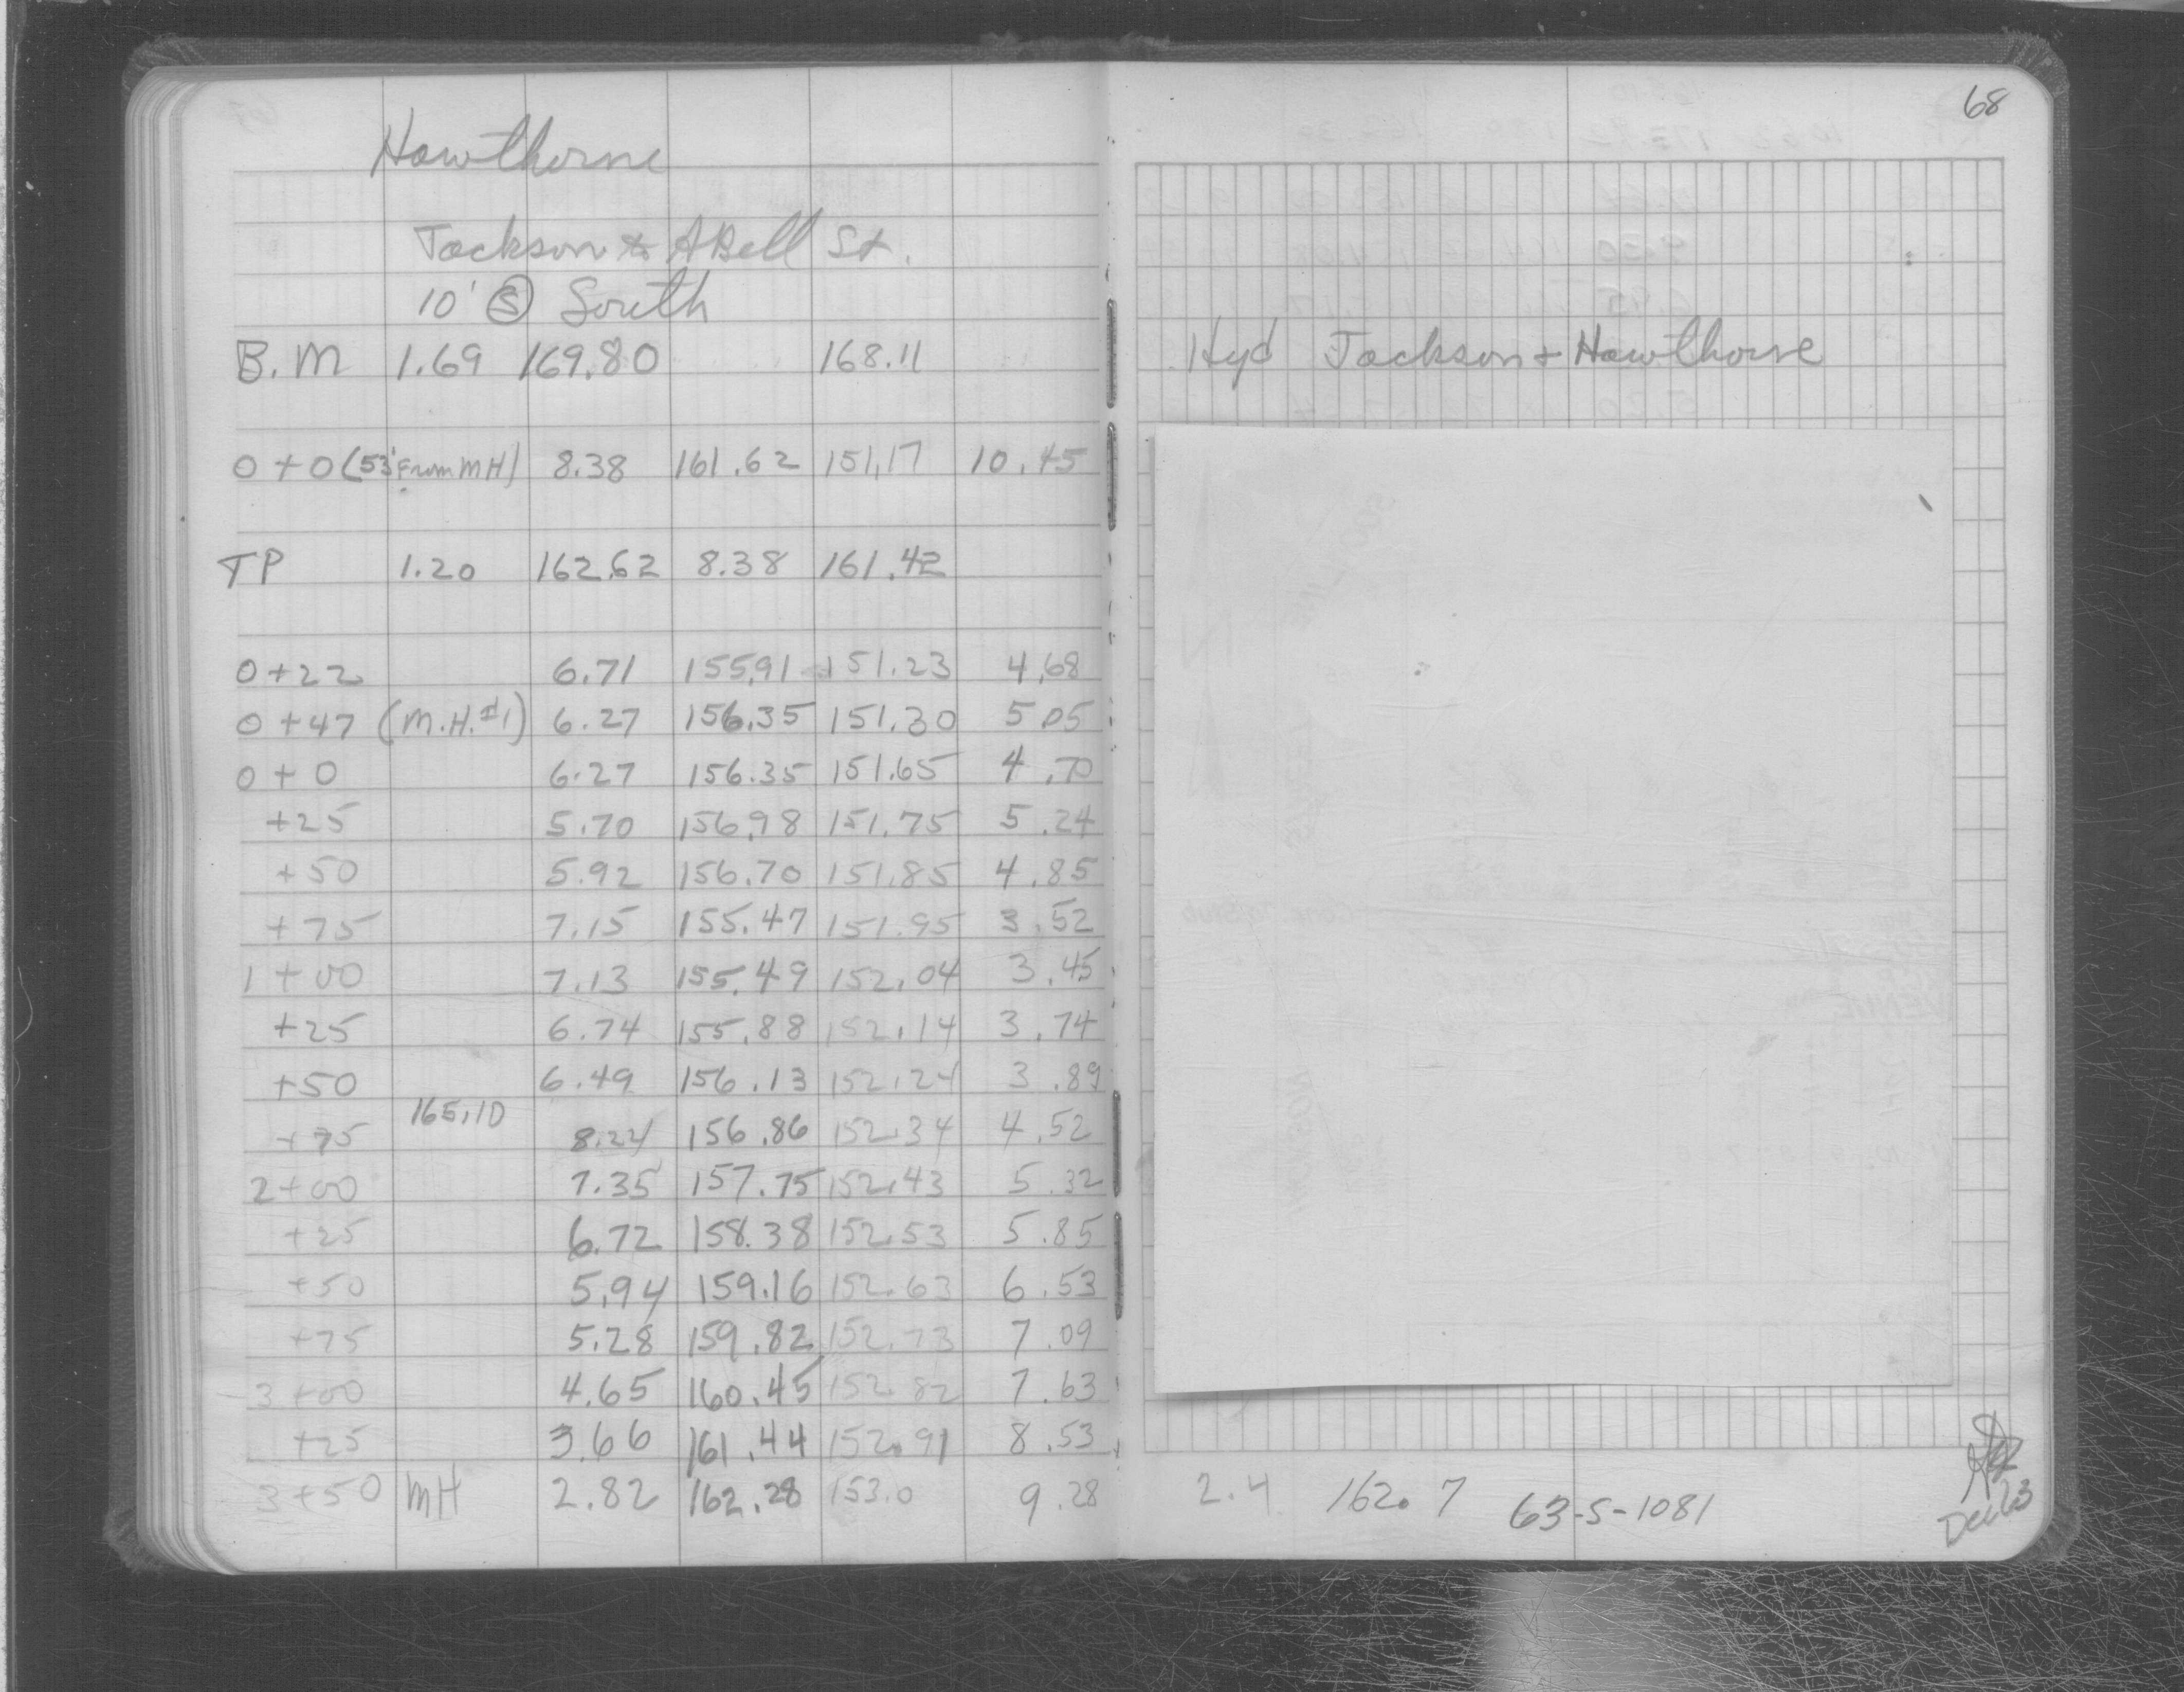 68
Hawthorne
Jackson to ABell St.
10' Ⓢ South
B.M 1.69 169.80 168.11 Hyd Jackson + Hawthorne
0+0 (53' From MH) 8.38 161.62 151.17 10.45
TP 1.20 162.62 8.38 161.42
0+22 6.71 155.91 151.23 4.68
0+47 (M.H.#1) 6.27 156.35 151.30 5.05
0+0 6.27 156.35 151.65 4.70
+25 5.70 156.98 151.75 5.24
+50 5.92 156.70 151.85 4.85
+75 7.15 155.47 151.95 3.52
1+00 7.13 155.49 152.04 3.45
+25 6.74 155.88 152.14 3.74
+50 6.49 156.13 152.24 3.89
165.10
+75 8.24 156.86 152.34 4.52
2+00 7.35 157.75 152.43 5.32
+25 6.72 158.38 152.53 5.85
+50 5.94 159.16 152.63 6.53
+75 5.28 159.82 152.73 7.09
3+00 4.65 160.45 152.82 7.63
+25 3.66 161.44 152.91 8.53
3+50 MH 2.82 162.28 153.0 9.28 2.4 162.7 63-S-1081
Dec 63